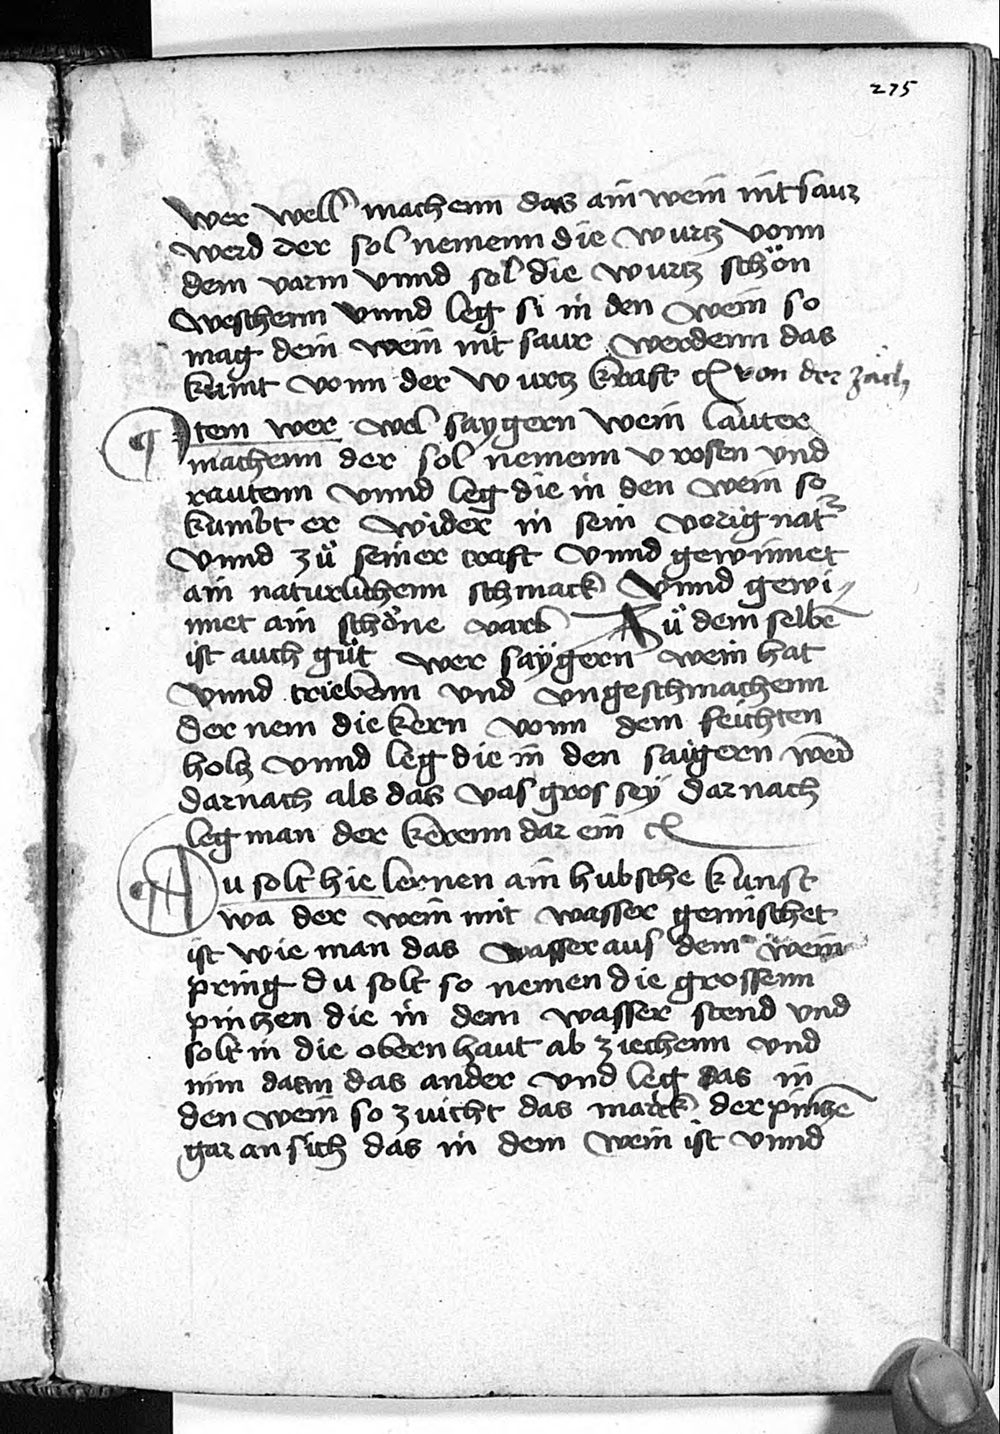 275
Wer well machenn das ain wein nit saur
werd der sol nemenn die wurtz vonn
dem varm vnnd sol die wurtz schön
weschenn vnnd leg si in den wein so
mag dein wein nit saur werdenn das
kumt vonn der wurtz kraft von der
¶ Item wer wel saygern wein lauter
machenn der sol nemenn v rosen vnd
rautenn vnnd leg die in den wein so
kumbt er wider in sein vorig nat
vnnd zů seiner craft vnnd gewinnet
ain naturlichenn schmack vnnd gewi
nnet ain schöne varb Zů dem selbē
ist auch gůt wer saÿgern wein hat
vnnd triebenn vnd vngeschmachenn
der nem die kern vonn dem feichten
holtz vnnd leg die in den saigern
darnach als das vas gros seÿ dar nach
leg man der kerenn dar ein
¶ Du solt hie lernen ain hubsche kunst
wa der wein mit wasser gemischet
ist wie man das wasser aus dem wein
pring du solt so nemen die grossenn
pintzen die in dem wasser stend vnd
solt in die obern haut ab ziechenn vnd
nim dann das ander vnd leg das in
den wein so zuicht das marck der pintzē
gar an sich das in dem wein ist vnnd